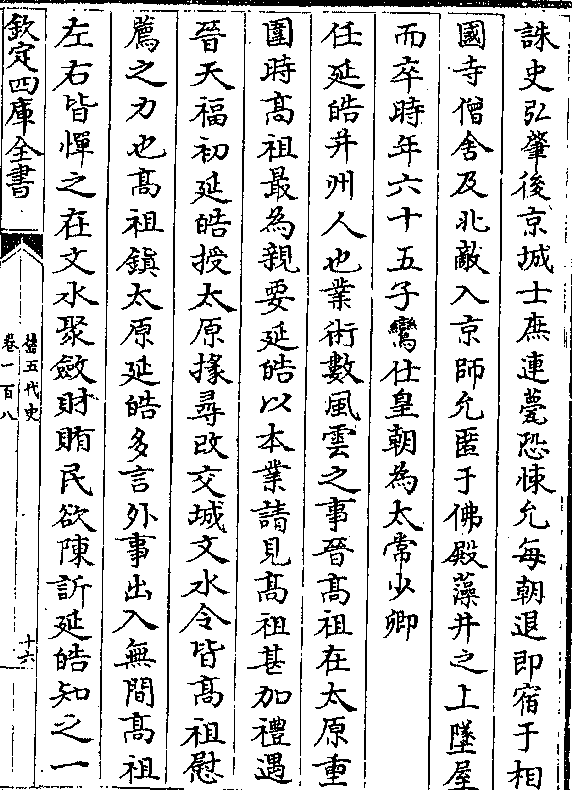 誅史弘肇後京城士庶連甍恐悚允每朝退即宿于相
國寺僧舍及北敵入京師允匿于佛殿藻井之上墜屋
而卒時年六十五子鸞仕皇朝為太常少卿
任延皓并州人也業術數風雲之事晉髙祖在太原重
圍時髙祖最為親要延皓以本業請見髙祖甚加禮遇
晉天福初延皓授太原掾尋改交城文水令皆髙祖慰
薦之力也髙祖鎮太原延皓多言外事出入無間髙祖
左右皆憚之在文水聚斂財賄民欲陳訴延皓知之一
欽定四庫全書
舊五代史
卷一百八
十六